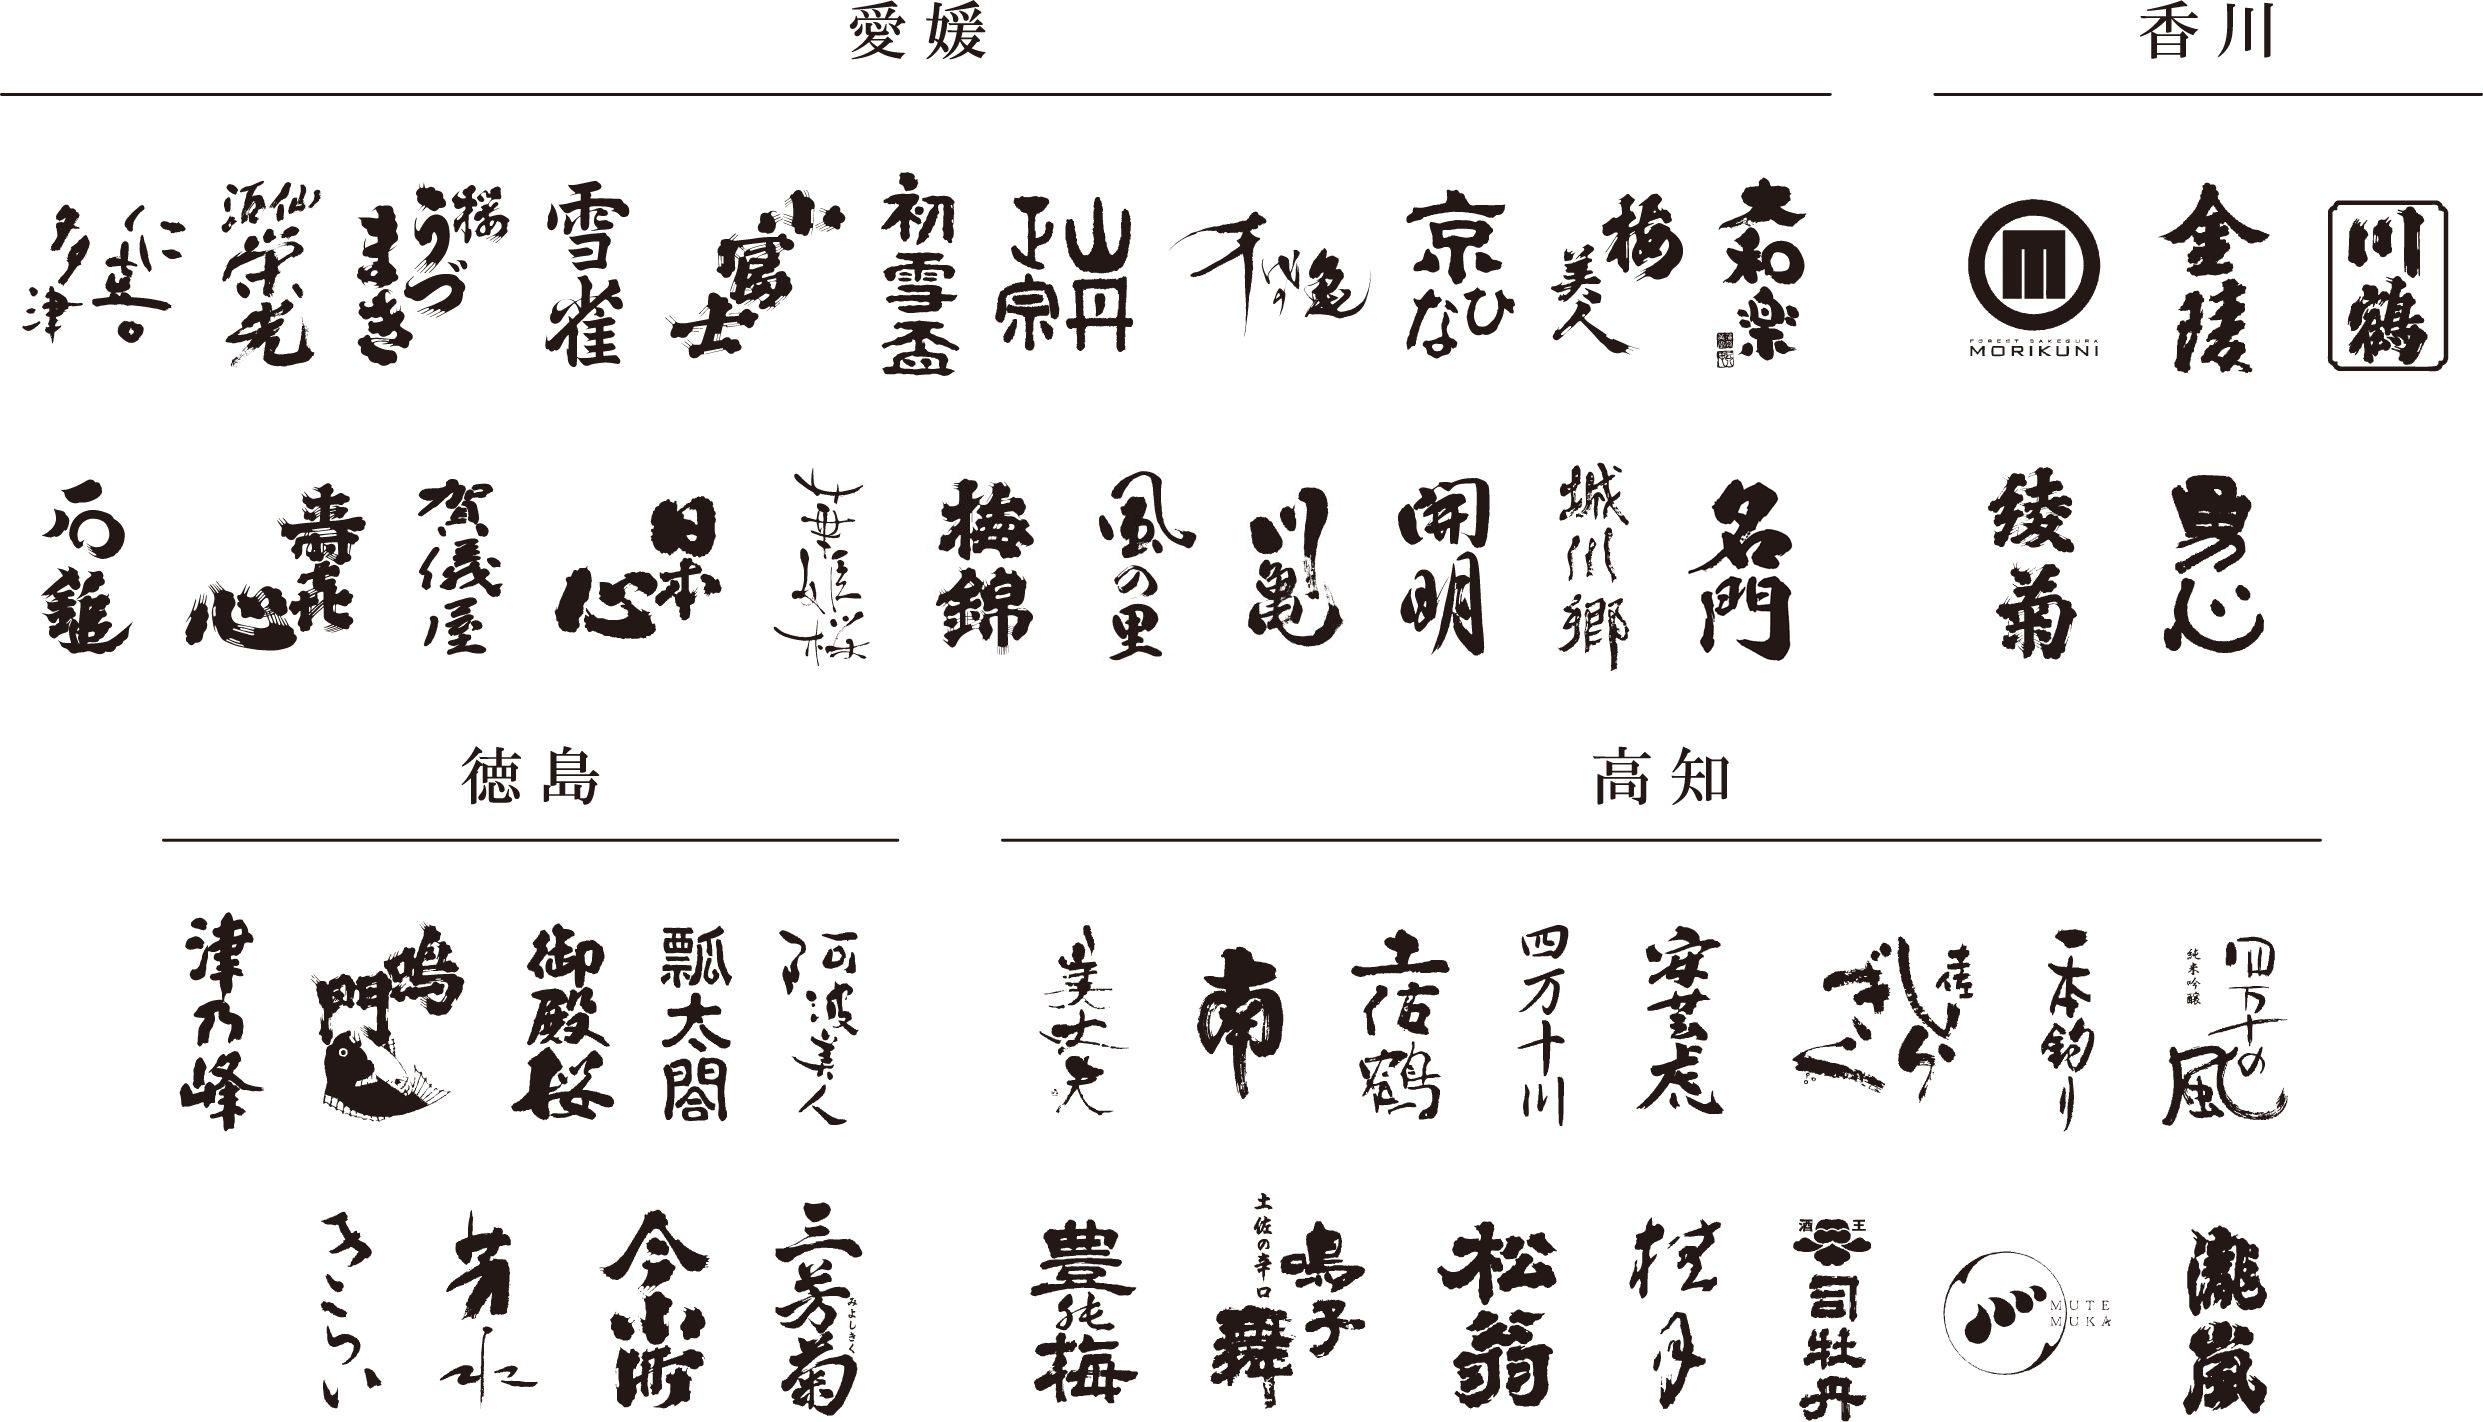 愛媛
仁喜多津
酒仙
栄光
桜うづまき
雪雀
小富士
初雪盃
山丹正宗
千代の亀
京ひな
梅美人
大和楽
石鎚
壽喜心
賀儀屋
日本心
華姫桜
梅錦
風の里
川亀
開明
城川郷
名門
香川
FOREST SAKEGURA
MORIKUNI
金陵
川鶴
綾菊
勇心
徳島
津乃峰
鳴門
御殿桜
瓢太閤
阿波美人
きらい
芳水
今小町
三芳菊
みよしきく
高知
美丈夫
南
土佐鶴
四万十川
安芸虎
土佐しらぎく
一本釣り
四万十の風
純米吟醸
豊能梅
土佐の辛口
鳴子舞
松翁
桂月
酒王
司牡丹
MUTE
MUKA
瀧嵐